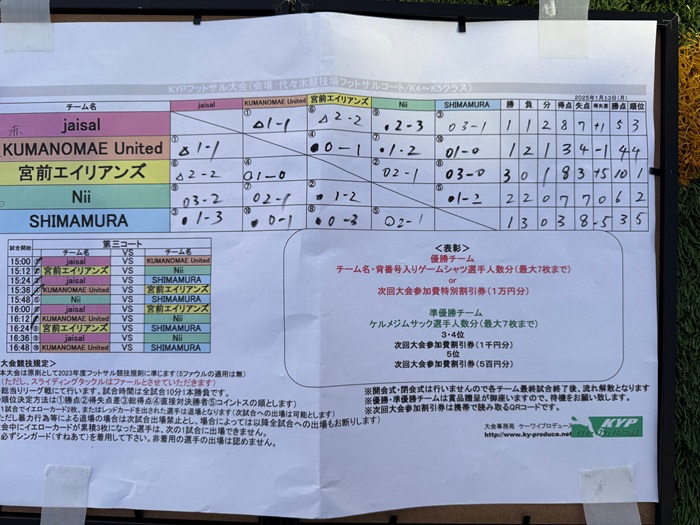 KYPフットサル大会(会場:代々木競技場フットサルコート/K4～K5クラス)
2025年1月13日(月)
チーム名 jaisal KUMANOMAE United 宮前エイリアンズ Nii SHIMAMURA 勝 負 分 得点 失点 得失差 勝点 順位
jaisal ①△1-1 ⑥△2-2 ⑨●2-3 ③○3-1 1 1 2 8 7 +1 5 3
KUMANOMAE United ①△1-1 ④●0-1 ⑦●1-2 ⑩○1-0 1 2 1 3 4 -1 4 4
宮前エイリアンズ ⑥△2-2 ④○1-0 ②○2-1 ⑧○3-0 3 0 1 8 3 +5 10 1
Nii ⑨○3-2 ⑦○2-1 ②●1-2 ⑤●1-2 2 2 0 7 7 0 6 2
SHIMAMURA ③●1-3 ⑩●0-1 ⑧●0-3 ⑤○2-1 1 3 0 3 8 -5 3 5
第三コート
試合開始 チーム名 VS チーム名
15:00 jaisal VS KUMANOMAE United
15:12 宮前エイリアンズ VS Nii
15:24 jaisal VS SHIMAMURA
15:36 KUMANOMAE United VS 宮前エイリアンズ
15:48 Nii VS SHIMAMURA
16:00 jaisal VS 宮前エイリアンズ
16:12 KUMANOMAE United VS Nii
16:24 宮前エイリアンズ VS SHIMAMURA
16:36 jaisal VS Nii
16:48 KUMANOMAE United VS SHIMAMURA
<表彰>
優勝チーム
チーム名・背番号入りゲームシャツ選手人数分(最大7枚まで)
or
次回大会参加費特別割引券(1万円分)
準優勝チーム
ケルメジムサック選手人数分(最大7枚まで)
3・4位
次回大会参加費割引券(1千円分)
5位
次回大会参加費割引券(5百円分)
大会競技規定>
本大会は原則として2023年度フットサル競技規則に準じます(5ファウルの適用は無)
(ただし、スライディングタックルはファールとさせていただきます)
総当りリーグ戦にて行います。試合時間は全試合10分1本勝負です。
順位決定方法は①勝点②得失点差③総得点④直接対決勝者⑤コイントスの順とします)
1試合でイエローカード2枚、またはレッドカードを出された選手は退場となります(次試合への出場は可能とします)
ただし暴力行為等による退場の場合は次試合出場禁止とし、場合によっては以降全試合への出場もお断りします)
会中にイエローカードが累積3枚になった選手は、次の1試合に出場できません。
必ずシンガード(すねあて)を着用して下さい。非着用の選手の出場は認めません。
※開会式・閉会式は行いませんので各チーム最終試合終了後、流れ解散となります
※優勝・準優勝チームは賞品贈呈が御座いますので、待機をお願い致します。
※次回大会参加割引券は携帯で読み取るQRコードです。
大会事務局 ケーワイプロデュース
http://www.ky-produce.net
KYP